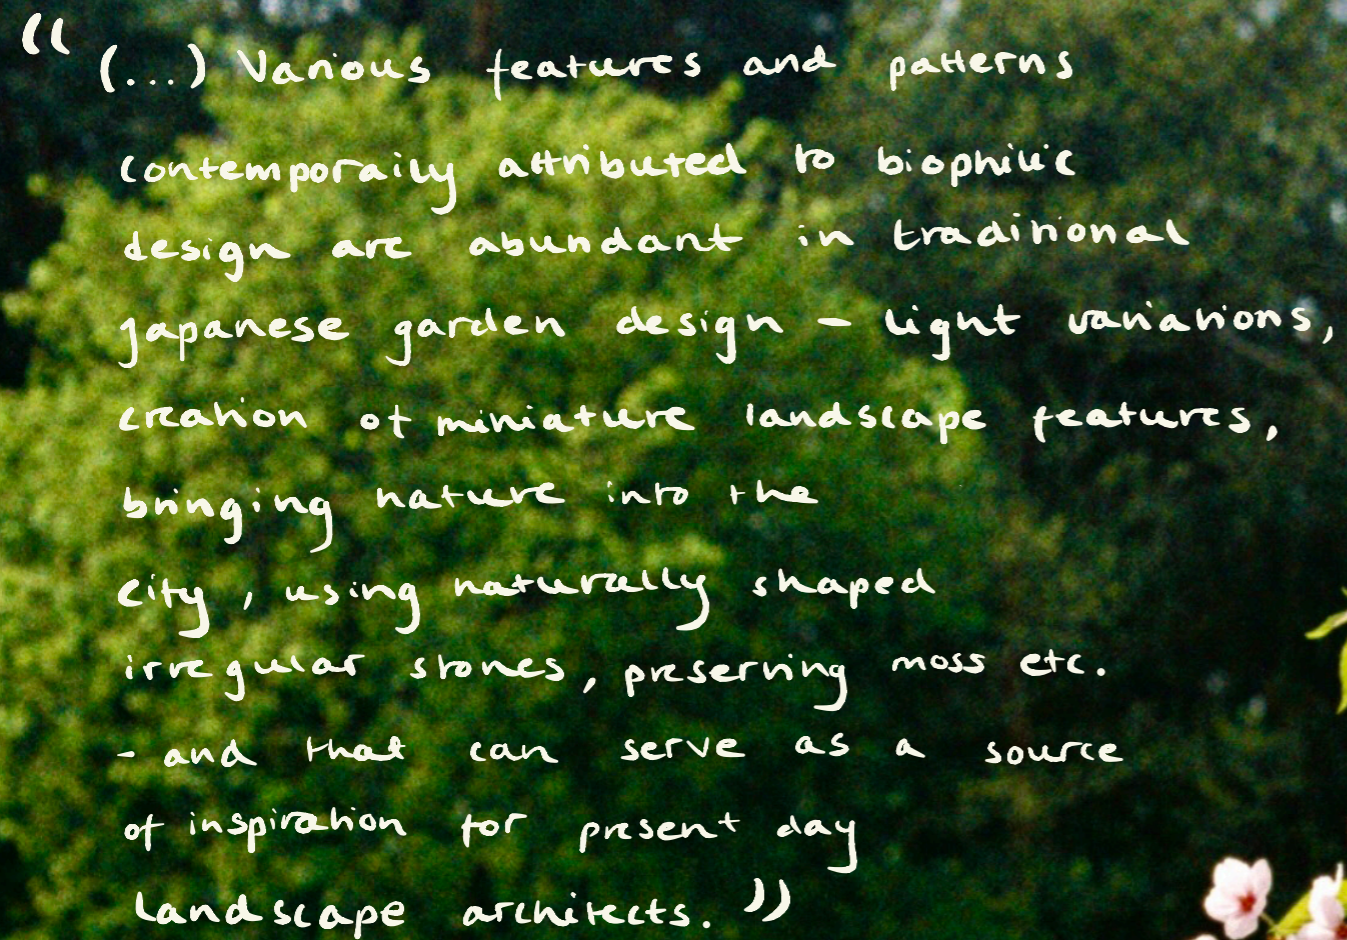 “ (...) Various features and patterns
contemporaily attributed to biophilic
design are abundant in traditional
japanese garden design - light variations,
creation of miniature landscape features,
bringing nature into the
city, using naturally shaped
irregular stones, preserving moss etc.
- and that can serve as a source
of inspiration for present day
landscape architects. ”